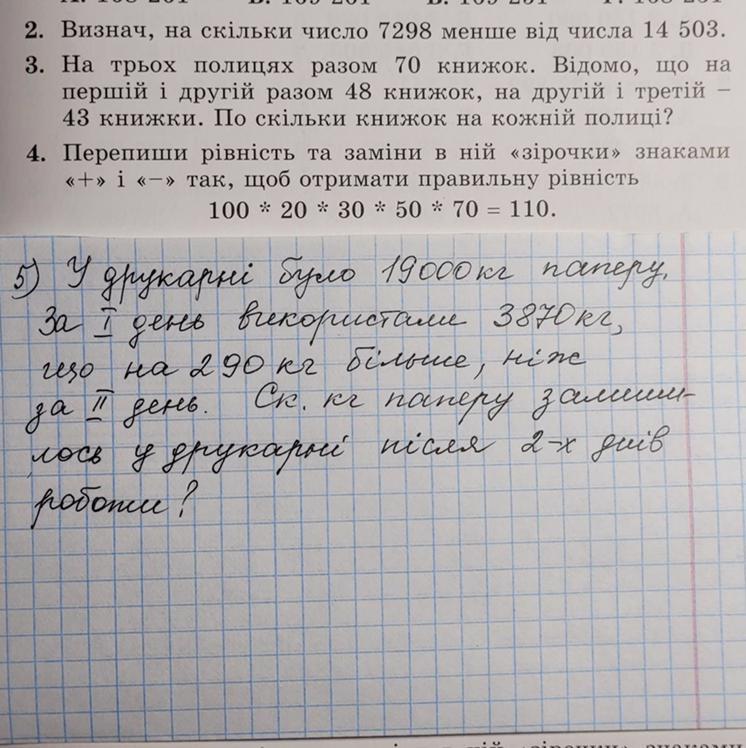 2. Визнач, на скільки число 7298 менше від числа 14 503.
3. На трьох полицях разом 70 книжок. Відомо, що на
першій і другій разом 48 книжок, на другій і третій –
43 книжки. По скільки книжок на кожній полиці?
4. Перепиши рівність та заміни в ній «зірочки» знаками
«+» і «−» так, щоб отримати правильну рівність
100 * 20 * 30 * 50 * 70 = 110.
5) У друкарні було 19000 кг паперу.
За I день використали 3870 кг,
що на 290 кг більше, ніж
за II день. Ск. кг паперу залиши-
лось у друкарні після 2-х днів
роботи?